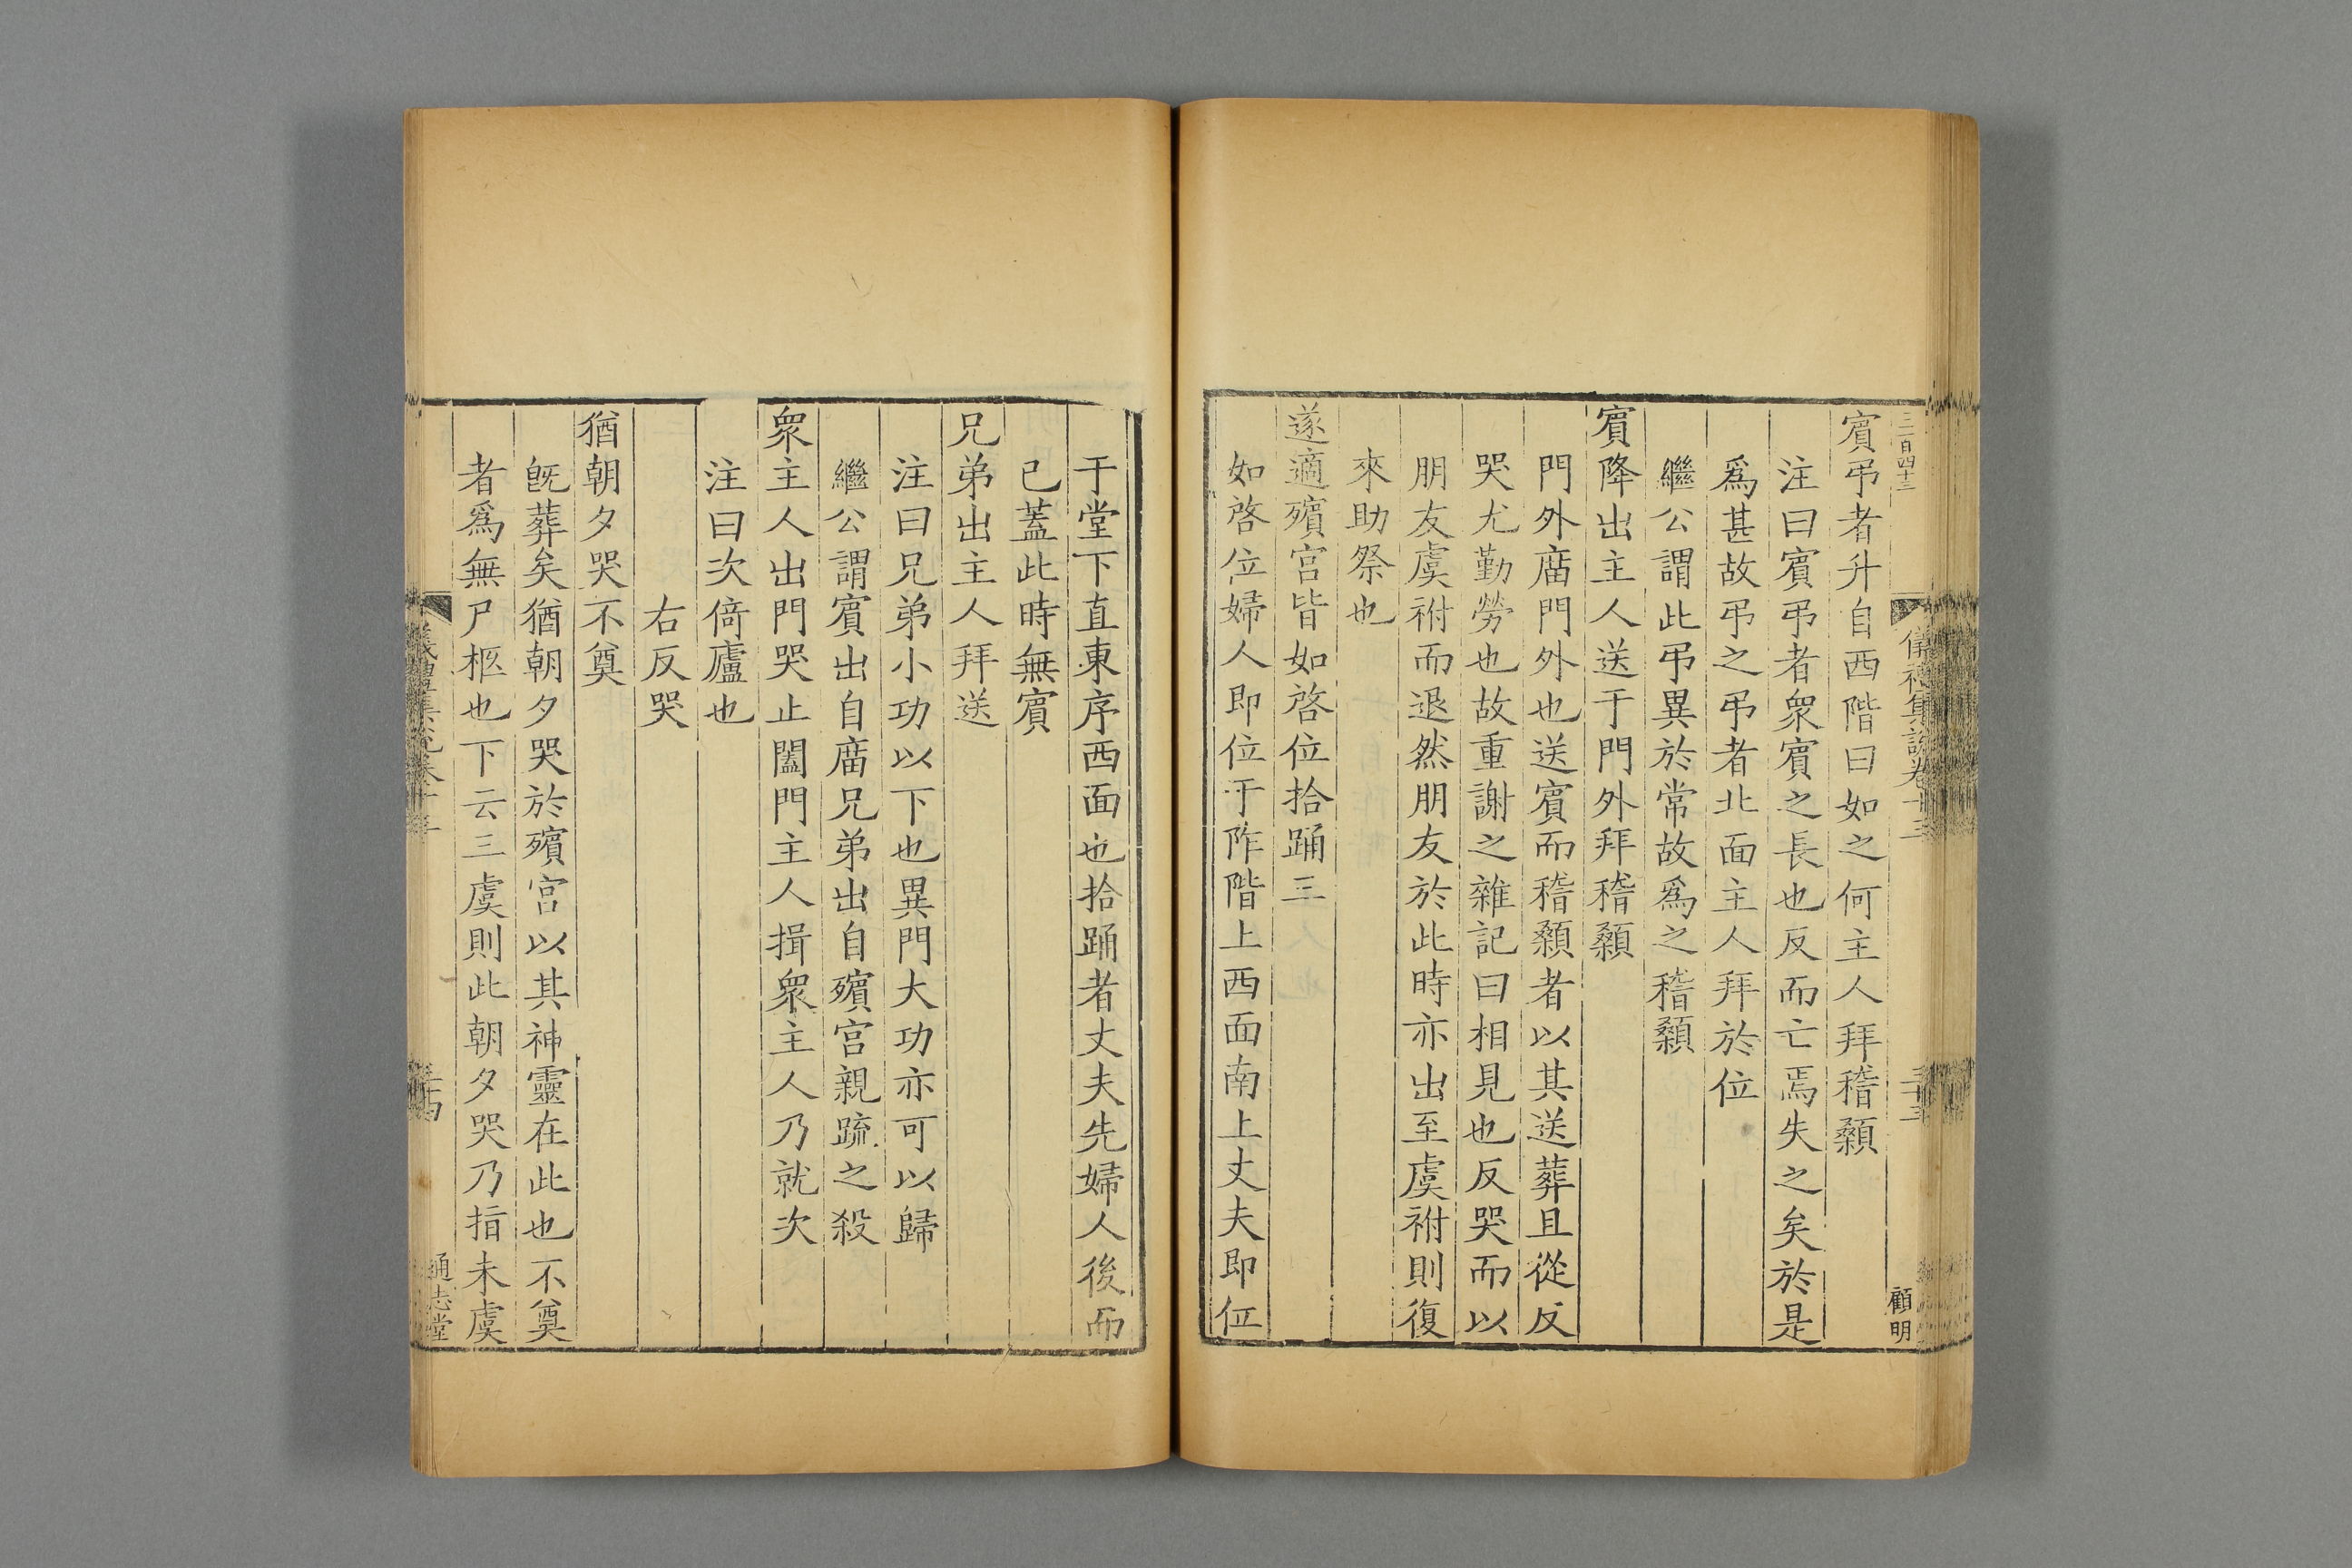 三百四十三
儀禮集說卷十三
三十三
顧明
賔弔者升自西階曰如之何主人拜稽顙
注曰賔弔者衆賔之長也反而亡焉失之矣於是
爲甚故弔之弔者北面主人拜於位
繼公謂此弔異於常故爲之稽顙
賔降出主人送于門外拜稽顙
門外廟門外也送賔而稽顙者以其送葬且從反
哭尤勤勞也故重謝之雜記曰相見也反哭而以
朋友虞祔而退然朋友於此時亦出至虞祔則復
來助祭也
遂適殯宮皆如啓位拾踊三
如啓位婦人即位于阼階上西面南上丈夫即位
于堂下直東序西面也拾踊者丈夫先婦人後而
已蓋此時無賔
兄弟出主人拜送
注曰兄弟小功以下也異門大功亦可以歸
繼公謂賔出自廟兄弟出自殯宮親疏之殺
衆主人出門哭止闔門主人揖衆主人乃就次
注曰次倚廬也
右反哭
猶朝夕哭不奠
旣葬矣猶朝夕哭於殯宮以其神靈在此也不奠
者爲無尸柩也下云三虞則此朝夕哭乃指未虞
儀禮集說卷十三
三十四
通志堂